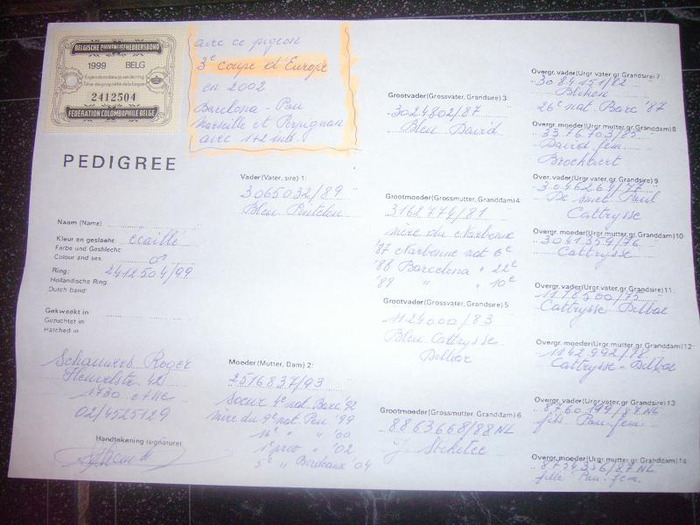 BELGISCHE DUIVENLIEFHEBBERSBOND
1999 BELG
2412504
FÉDÉRATION COLOMBOPHILE BELGE
avec ce pigeon
3e coupe d'Europe
en 2002
Barcelona - Pau
Marseille et Perpignan
avec 1+2 inl.
PEDIGREE
Naam (Name)
Kleur en geslacht écaillé
Farbe und Geschlecht
Colour and sex ♂
Ring: 2412504/99
Holländische Ring
Dutch band:
Gekweekt in
Gezüchter in
Hatched in
Schauwers Roger
02/4525129
Handtekening (signature)
Vader (Vater, sire) 1:
3065032/89
Moeder (Mutter, Dam) 2:
2516837/93
soeur 4e nat. Barc '92
mère du 9e nat Pau '99
" '00
1e prov " '02
5e " Bordeaux 04
Grootvader (Grossvater, Grandsire) 3
3024802/87
Bleu David
Grootmoeder (Grossmutter, Granddam) 4
3162474/81
mère du Narbonne
'87 Narbonne nat 6e
'88 Barcelona " 22e
'89 " " 10e
Grootvader (Grossvater, Grandsire) 5
1124000/83
Bleu Cattrysse
Delbar
Grootmoeder (Grossmutter, Granddam) 6
8863668/88 NL
Overgr. vader (Urgr. vater, gr. Grandsire) 7
3084151/82
26e nat Barc '87
Overgr. moeder (Urgr. mutter, gr. Granddam) 8
3376703/85
David fem.
Over. vader (Urgr. vater, gr. Grandsire) 9
3046264/77
Paul
Cattrysse
Overgr. moeder (Urgr. mutter, gr. Granddam) 10
3041359/76
Cattrysse
Overgr. vader (Urgr. vater, gr. Grandsire) 11:
Cattrysse Delbar
Overgr. moeder (Urgr. mutter, gr. Granddam) 12:
1142992/78
Cattrysse - Delbar
Overgr. vader (Urgr. vater, gr. Grandsire) 13
8760199/88 NL
fils Pau. fem.
Overgr. moeder (Urgr. mutter, gr. Granddam) 14
8734336/87 NL
fille Pau. fem.